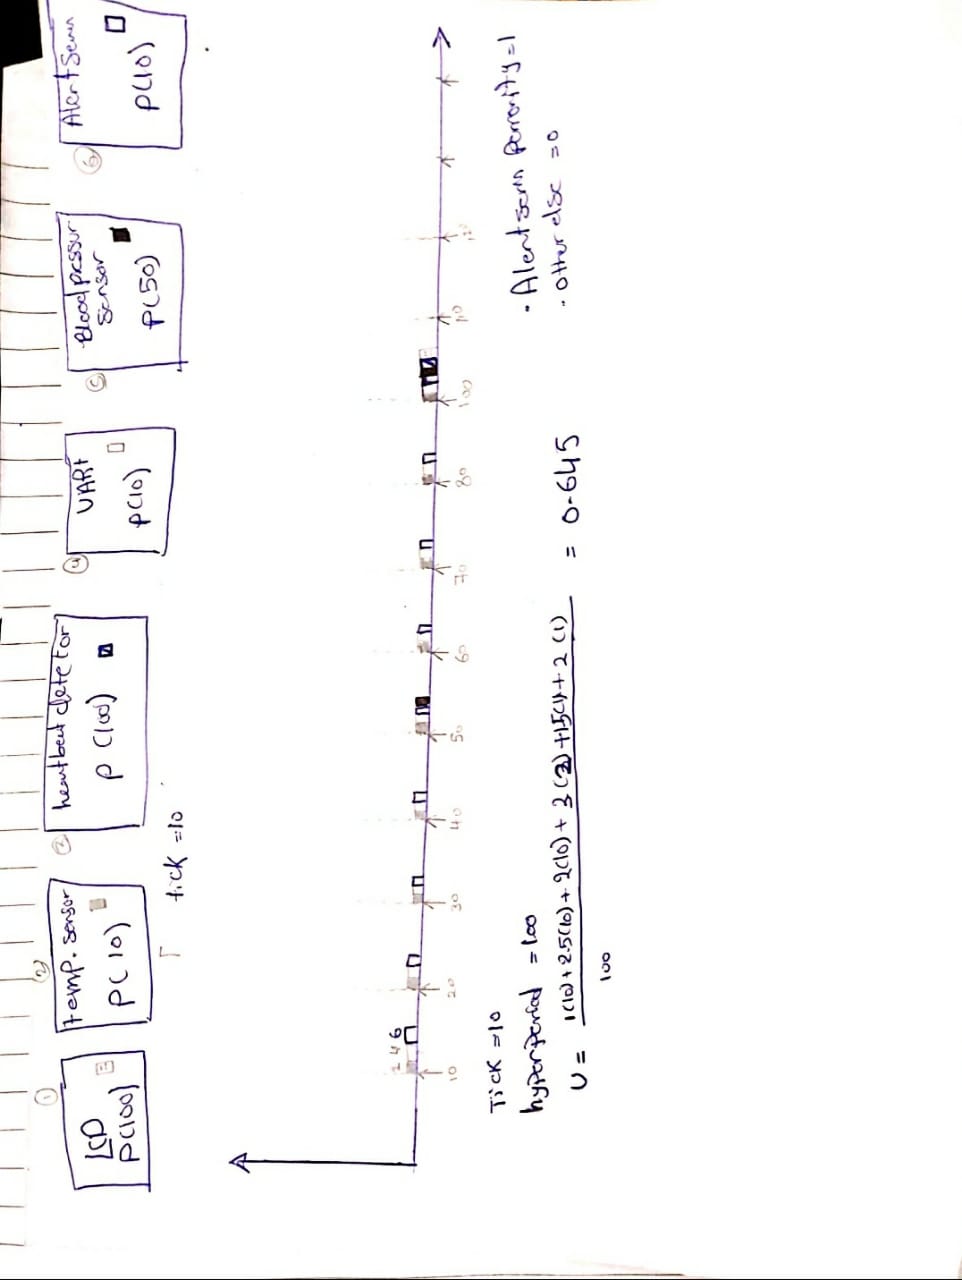 ① ② ③ ④ ⑤ ⑥
LCD
P(100)
temp. sensor
P(10)
heartbeat detector
P(100)
UART
P(10)
Blood pressur
sensor
P(50)
Alert
P(10)
tick =10
2 4 6
10 20 30 40 50 60 70 80 100 10
Tick =10
hyperperiod =100
U = 1(10)+2.5(10)+2(10)+3(2)+1.5(1)+2(1) = 0.645
100
. Alert
. other else =0